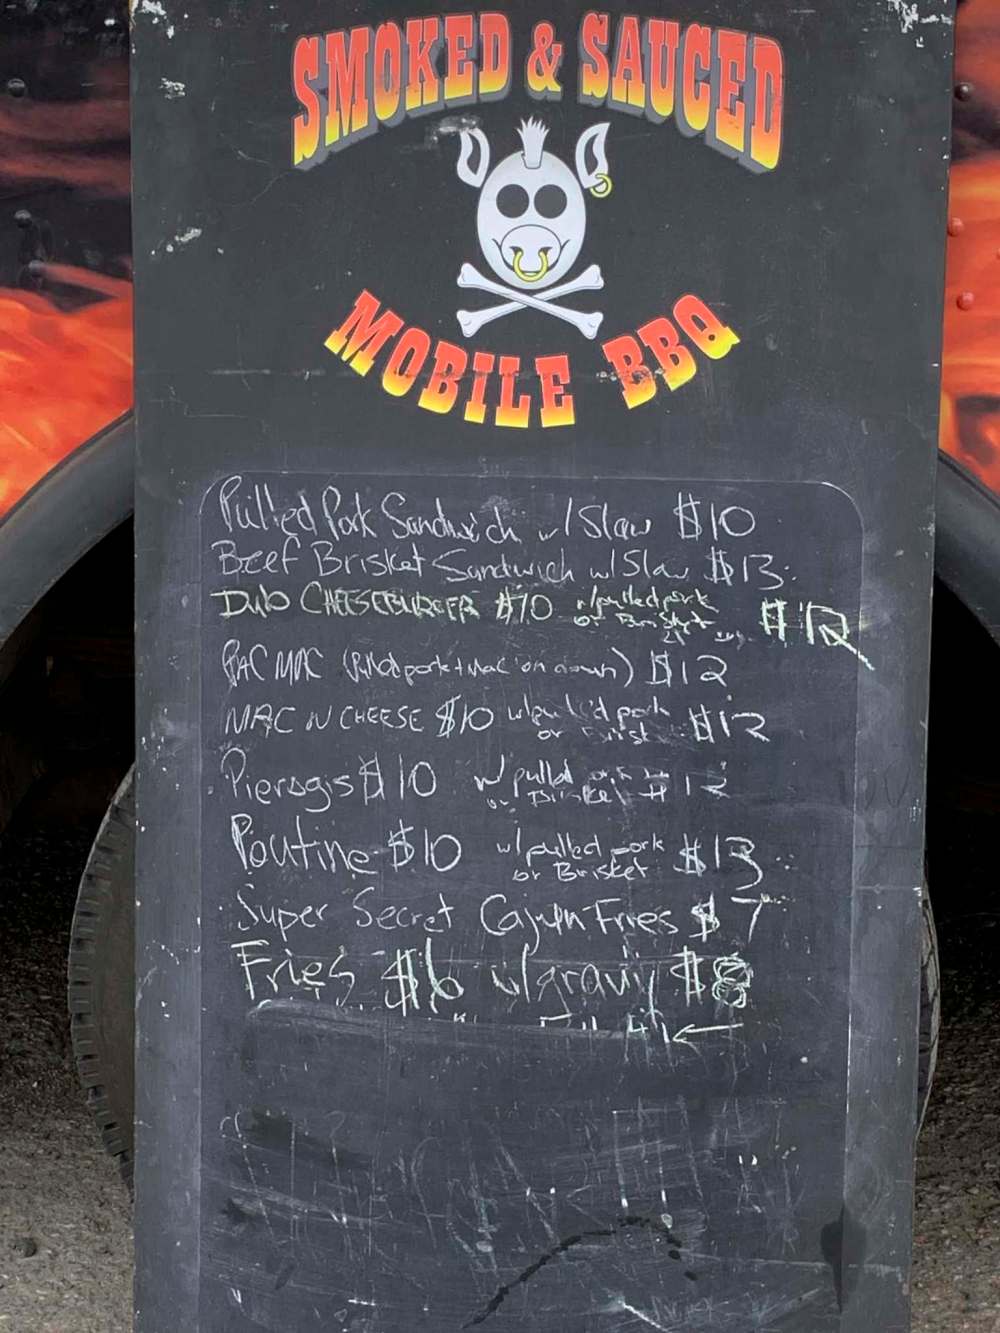 SMOKED & SAUCED
MOBILE BBQ
Pulled Pork Sandwich w/ Slaw $10
Beef Brisket Sandwich w/ Slaw $13
Dub CHEESEBURGER $10 w/pulled pork $12
or Brisket
MAC (Pulled pork + Mac on a bun) $12
MAC N CHEESE $10 w/pulled pork $12
or Brisket
Pierogis $10 w/ pulled pork $12
or Brisket
Poutine $10 w/ pulled pork $13
or Brisket
Super Secret Cajun Fries $7
Fries $6 w/gravy $8